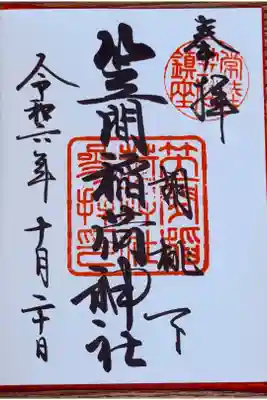 奉拝
鎮座
胡桃下
笠間稲荷神社
令和六年 十月二十日